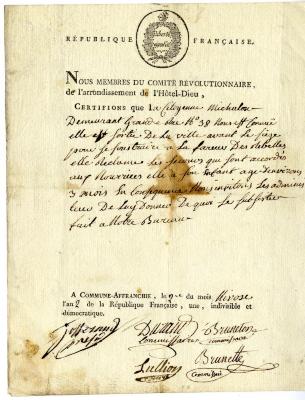 RÉPUBLIQUE FRANÇAISE.
Nous MEMBRES DU COMITÉ RÉVOLUTIONNAIRE,
de l'arrondissement de l'Hôtel-Dieu,
CERTIFIONS que La Citoyenne Michalon
Demeurant Grande Rue N° 38 Nous est Connue
elle est Sortie De la ville avant le siège
pour se Soustraire a la fureur Des rebelles
elle reclame les Secours qui sont accordés
aux Nourrices elle a son Enfant agé denviron
3 mois En Consequence Nous invitons les admini
De luy Donner De quoi Se Substenter
fait a Notre Bureau
A COMMUNE-AFFRANCHIE, le du mois Nivose
l'an 2 de la République Française, une, indivisible et
démocratique.
Brunette